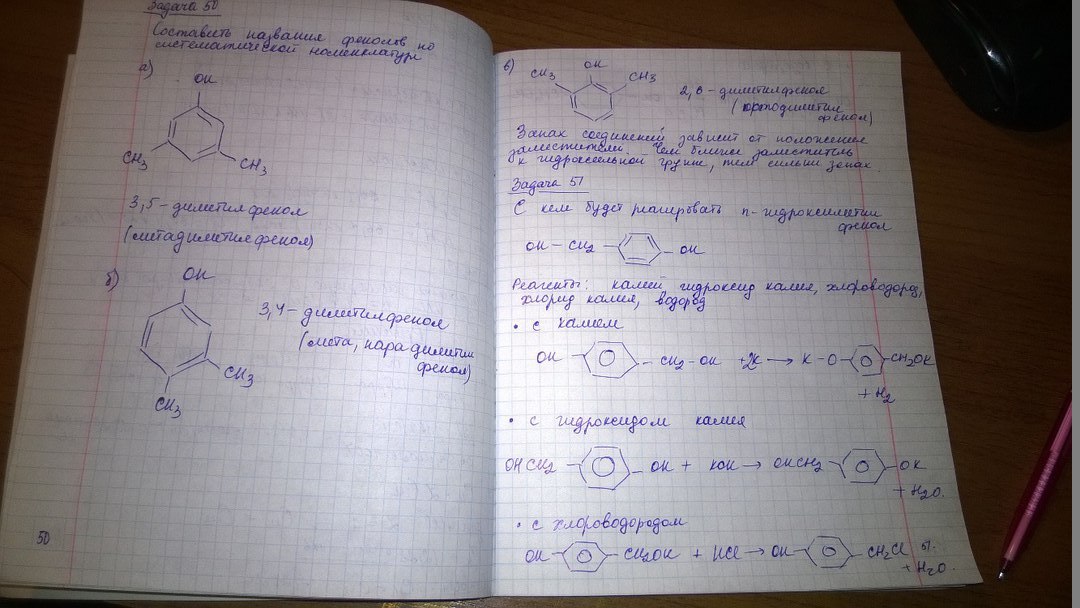 Задача 50
Составить названия фенолов по
систематической номенклатуре
а)
OH
CH3
CH3
3,5-диметилфенол
(метадиметилфенол)
б)
OH
CH3
CH3
3,4-диметилфенол
(мета, пара диметил
фенол)
50
в)
CH3
OH
CH3
2,6-диметилфенол
(ортодиметил
фенол)
Запах соединений зависит от положение
заместителей. Чем ближе заместитель
к гидроксильной группе, тем сильней запах.
Задача 51
С кем будет реагировать п-гидроксиметил
фенол
OH-CH2
OH
Реагенты: калий гидроксид калия, хлороводород,
хлорид калия, водород
• с калием
OH
-CH2-OH +2K → K-O-
-CH2OK
+H2
• с гидроксидом калия
OHCH2
-OH + KOH → OHCH2
-OK
+H2O.
• с хлороводородом
OH
-CH2OH + HCl → OH
-CH2Cl
+H2O.
51.